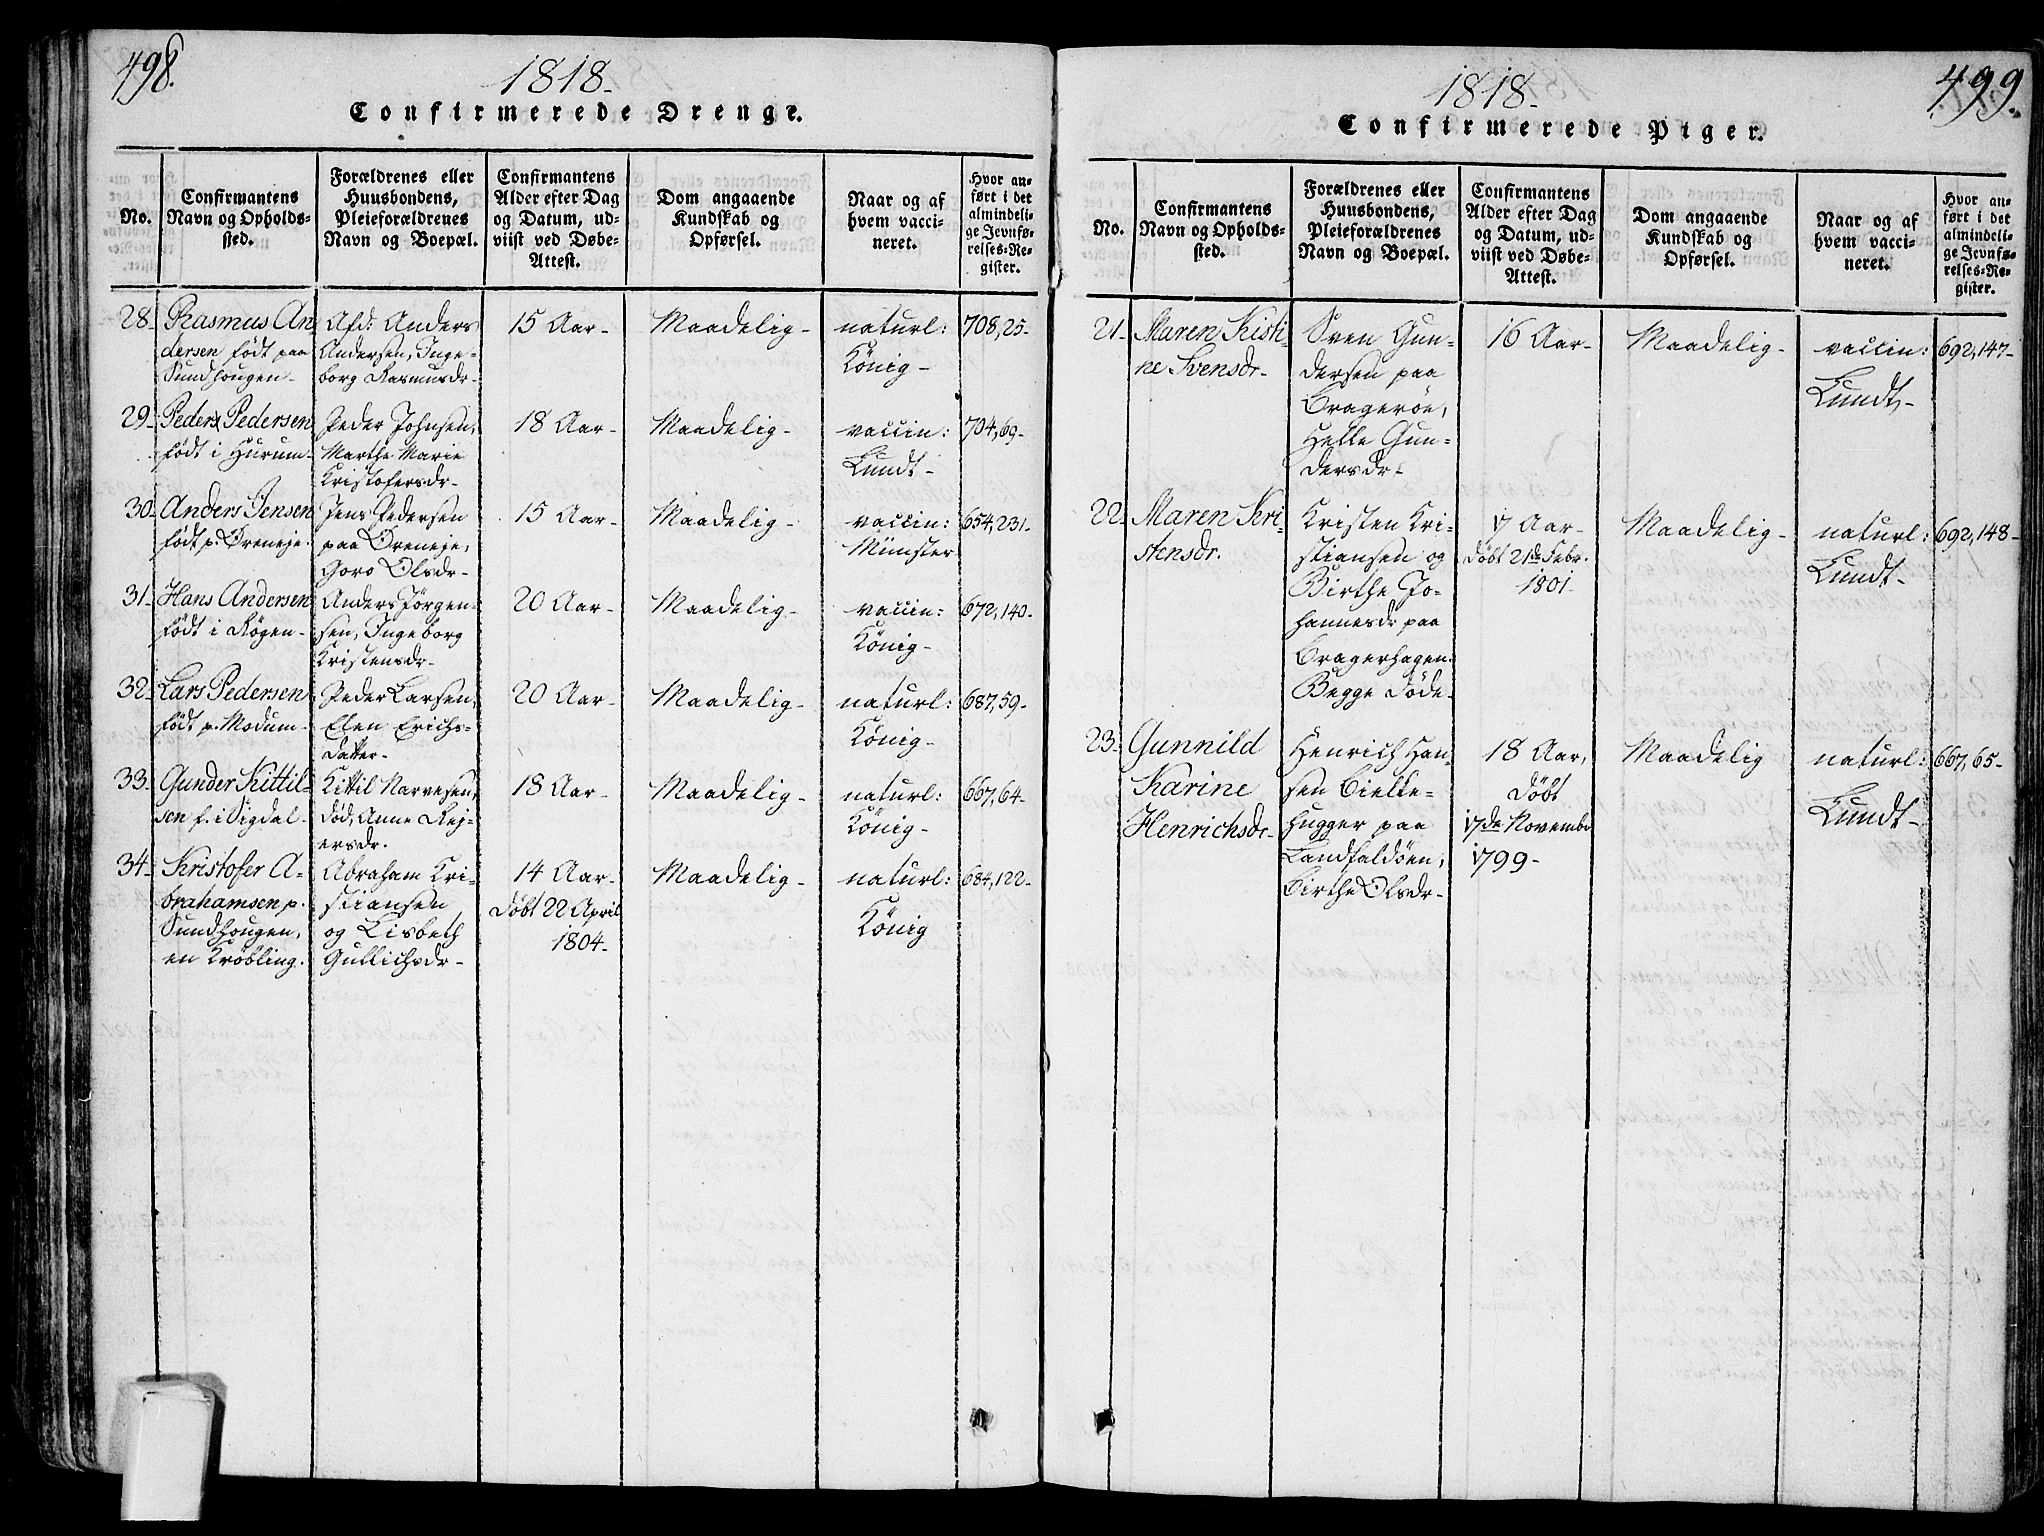 498.
1818.
Confirmerede Drenge.
No.
Confirmantens
Navn og Opholds-
sted.
Forældrenes eller
Huusbondens,
Pleieforældrenes
Navn og Boepæl.
Confirmantens
Alder efter Dag
og Datum, ud-
viist ved Døbe-
Attest.
Dom angaaende
Kundskab og
Opførsel.
Naar og af
hvem vacci-
neret.
Hvor an-
ført i det
almindeli-
ge Jevnfø-
relses-Re-
gister.
28. Rasmus An
dersen født paa
Sundhougen
Afd: Anders
Andersen, Inge-
borg Rasmusdr.
15 Aar
Maadelig
naturl:
König
708,25
29. Peder Pedersen
født i Hurum
Peder Johnsen,
Marthe Marie
Kristofersdr
18 Aar
Maadelig
vaccin:
Lundt
704,69
30. Anders Jensen
født p. Øreneje.
Jens Pedersen
paa Øreneje,
Goro Olsdr
15 Aar
Maadelig
vaccin:
Münster
654,231
31. Hans Andersen
født i Røgen
Anders Jørgen-
sen, Ingeborg
Kristensdr
20 Aar
Maadelig
vaccin:
König
672,140
32. Lars Pedersen
født p. Modum
Peder Larsen,
Elen Erichs-
datter
20 Aar
Maadelig
naturl:
König
687,59
33. Gunder Kittil-
sen f. i Sigdal
Kittil Narvesen,
død, Anne Rej-
ersdr.
18 Aar
Maadelig
naturl:
König
667,64
34. Kristofer A-
brahamsen p.
Sundhougen,
en Krøbling.
Abraham Kri-
stiansen
og Lisbeth
Gullichsdr
14 Aar
døbt 22 April
1804
Maadelig
naturl:
König
684,122
499.
1818.
Confirmerede Piger.
No.
Confirmantens
Navn og Opholds-
sted.
Forældrenes eller
Huusbondens,
Pleieforældrenes
Navn og Boepæl.
Confirmantens
Alder efter Dag
og Datum, ud-
viist ved Døbe-
Attest.
Dom angaaende
Kundskab og
Opførsel.
Naar og af
hvem vacci-
neret.
Hvor an-
ført i det
almindeli-
ge Jevnfø-
relses-Re-
gister.
21. Maren Kisti-
ne Svensdr.
Sven Gun-
dersen paa
Bragerøe,
Helle Gun-
dersdr
16 Aar
Maadelig
vaccin:
Lundt
692,147
22. Maren Kri-
stensdr.
Kristen Kri-
stiansen og
Birthe Jo-
hannesdr paa
Bragerhagen
Begge døde
17 Aar
døbt 21de Febr.
1801
Maadelig
naturl:
Lundt
692,148
23. Gunnild
Karine
Henrichsdr
Henrich Han-
sen Bielke-
hugger paa
Landfaldøen,
Birthe Olsdr
18 Aar,
døbt
17de Novembr
1799
Maadelig
naturl:
Lundt
667,65